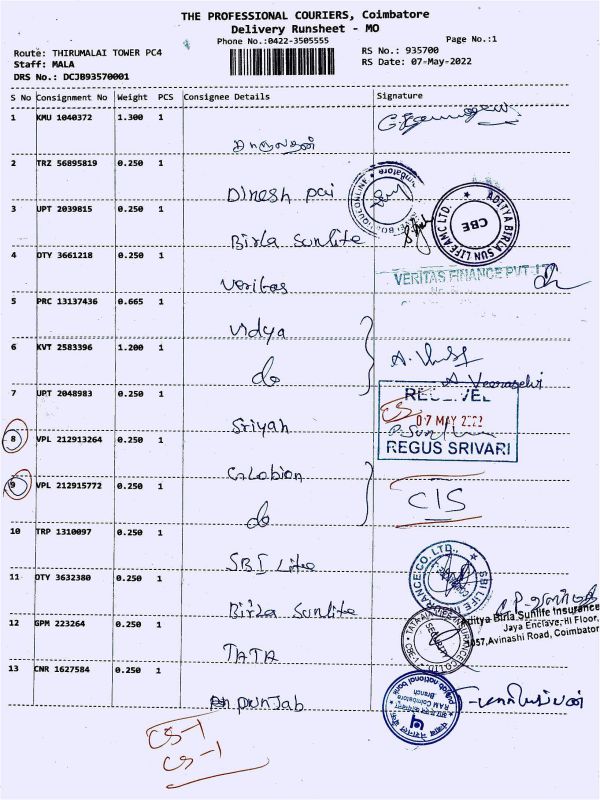 THE PROFESSIONAL COURIERS, Coimbatore
Delivery Runsheet - MO
Phone No.:0422-3505555 Page No.:1
Route: THIRUMALAI TOWER PC4 RS No.: 935700
Staff: MALA RS Date: 07-May-2022
DRS No.: DCJB93570001
S No Consignment No Weight PCS Consignee Details Signature
1 KMU 1040372 1.300 1
2 TRZ 56895819 0.250 1 Dinesh pai
3 UPT 2039815 0.250 1 Birla sunlife ADITYA BIRLA SUN LIFE AMC LTD. CBE
4 DTY 3661218 0.250 1 veritas VERITAS FINANCE PVT LTD
5 PRC 13137436 0.665 1 vidya
6 KVT 2583396 1.200 1 do
7 UPT 2048983 0.250 1 Sriyah
RECEIVED
07 MAY 2022
REGUS SRIVARI
8 VPL 212913264 0.250 1
9 VPL 212915772 0.250 1 do CIS
10 TRP 1310097 0.250 1 SBI Life
11 DTY 3632380 0.250 1 Birla sunlife SBI LIFE INSURANCE CO. LTD.
Aditya Birla Sunlife Insurance
Jaya Enclave, III Floor,
1057,Avinashi Road, Coimbatore
12 GPM 223264 0.250 1 TATA
13 CNR 1627584 0.250 1 punjab
punjab national bank
RAM Coimbatore
Branch
CS-1
CS-1